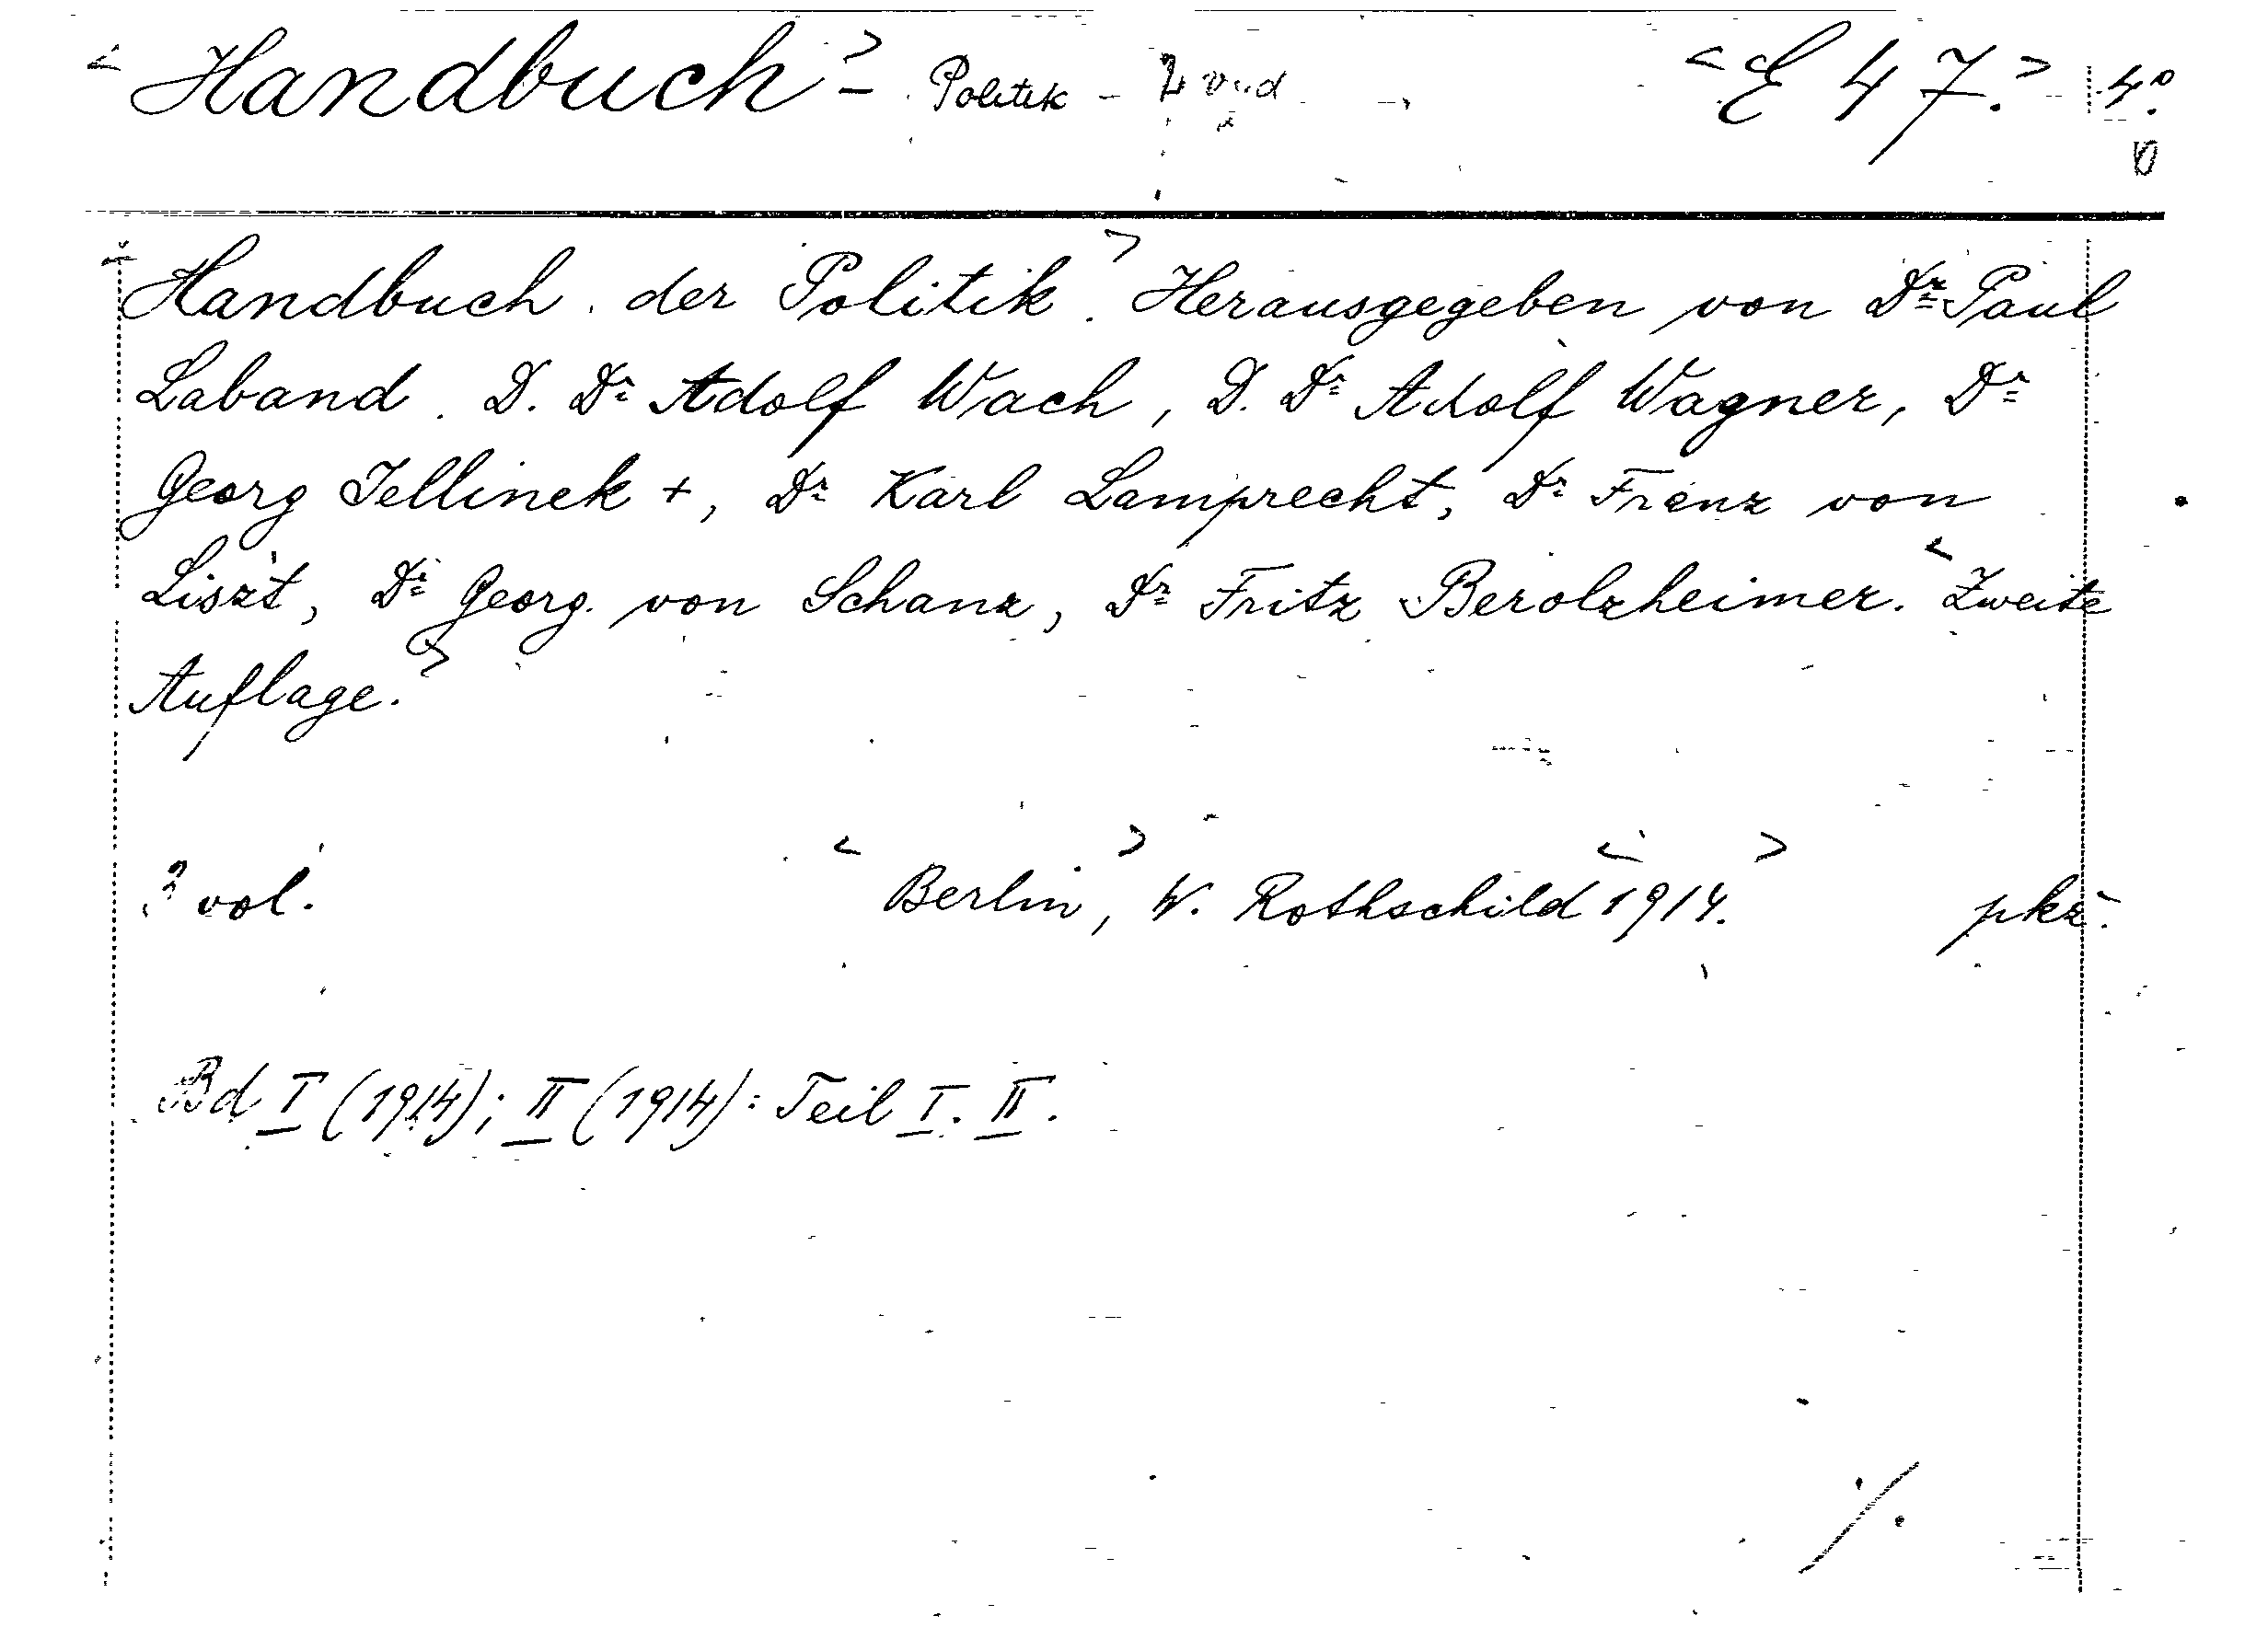 < Handbuch > - Politik - < E 47. > 4°.
< Handbuch der Politik >. Herausgegeben von Dr Paul
Laband. D. Dr Adolf Wach, D. Dr Adolf Wagner, Dr
Georg Jellinek +, Dr Karl Lamprecht, Dr Franz von
Liszt, Dr Georg von Schanz, Dr Fritz Berolzheimer. < Zweite
Auflage. >
vol. < Berlin >, W. Rothschild < 1914. > pkz.
Bd I (1914); II (1914): Teil I. II.
./.